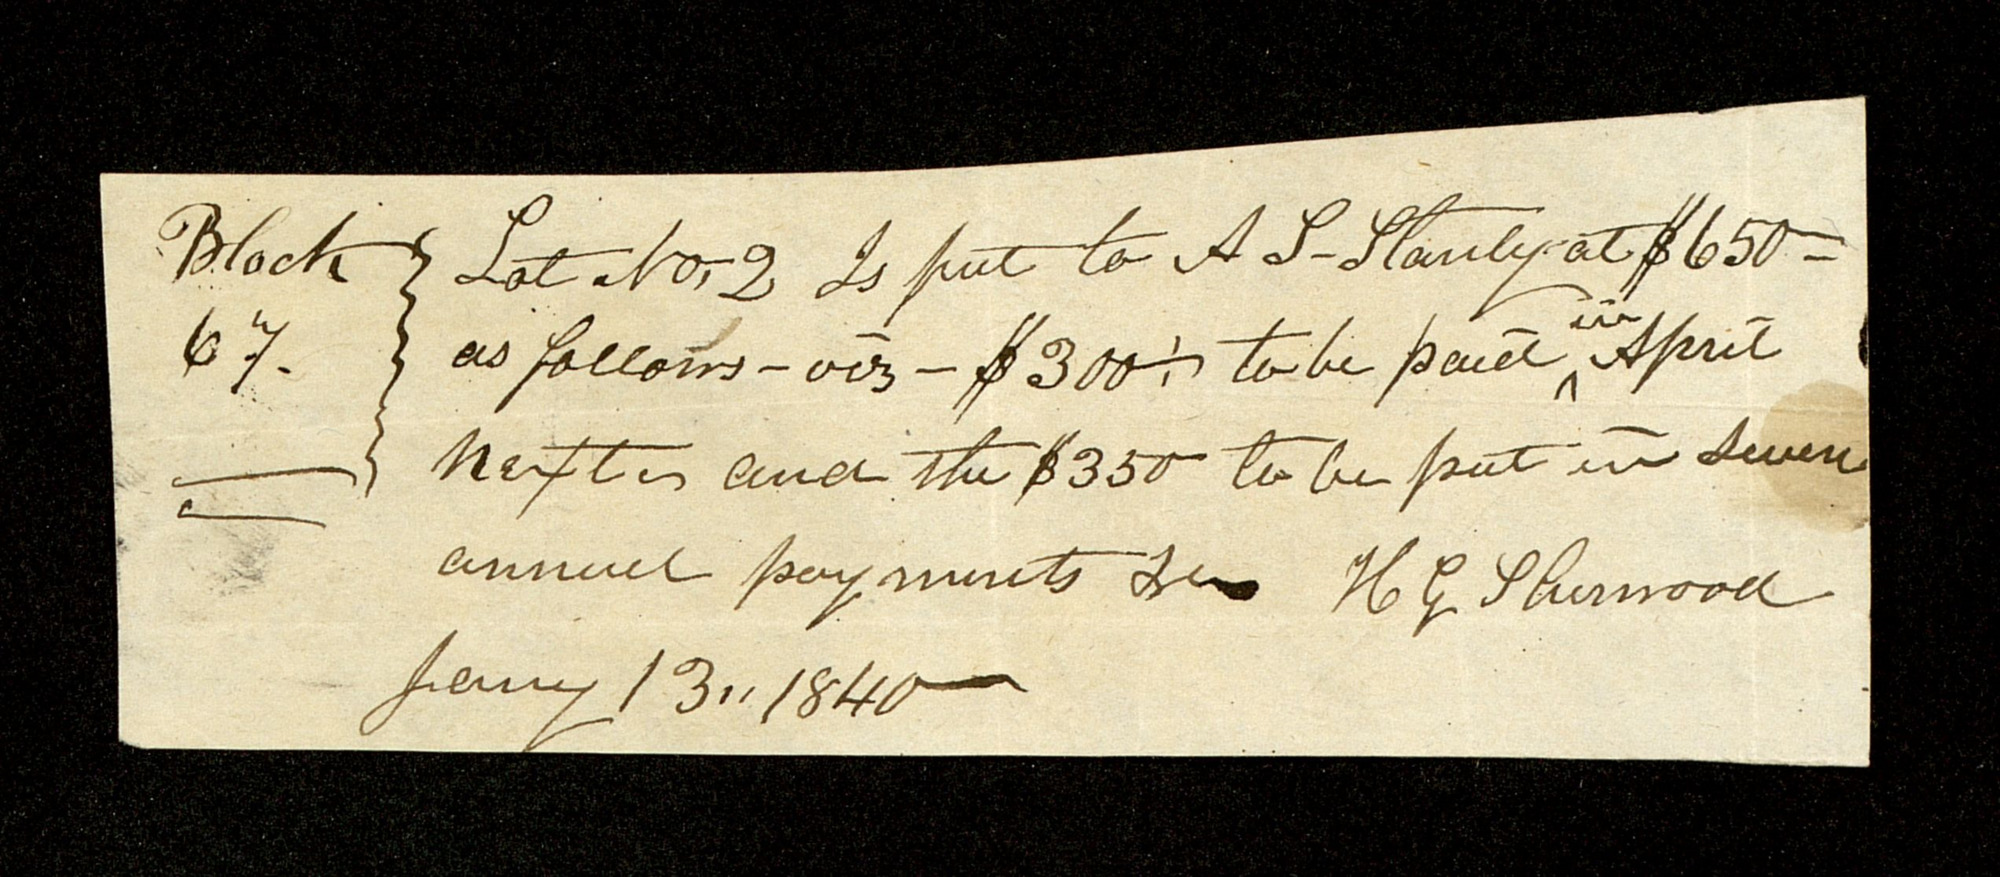 Block } Lot No, 2 Is put to A S- Stanly at $650-
67. as follows - viz - $300 to be paid in April
Next and the $350 to be put in seven
annuel payments &c H G Sherwood
Jany 13,, 1840